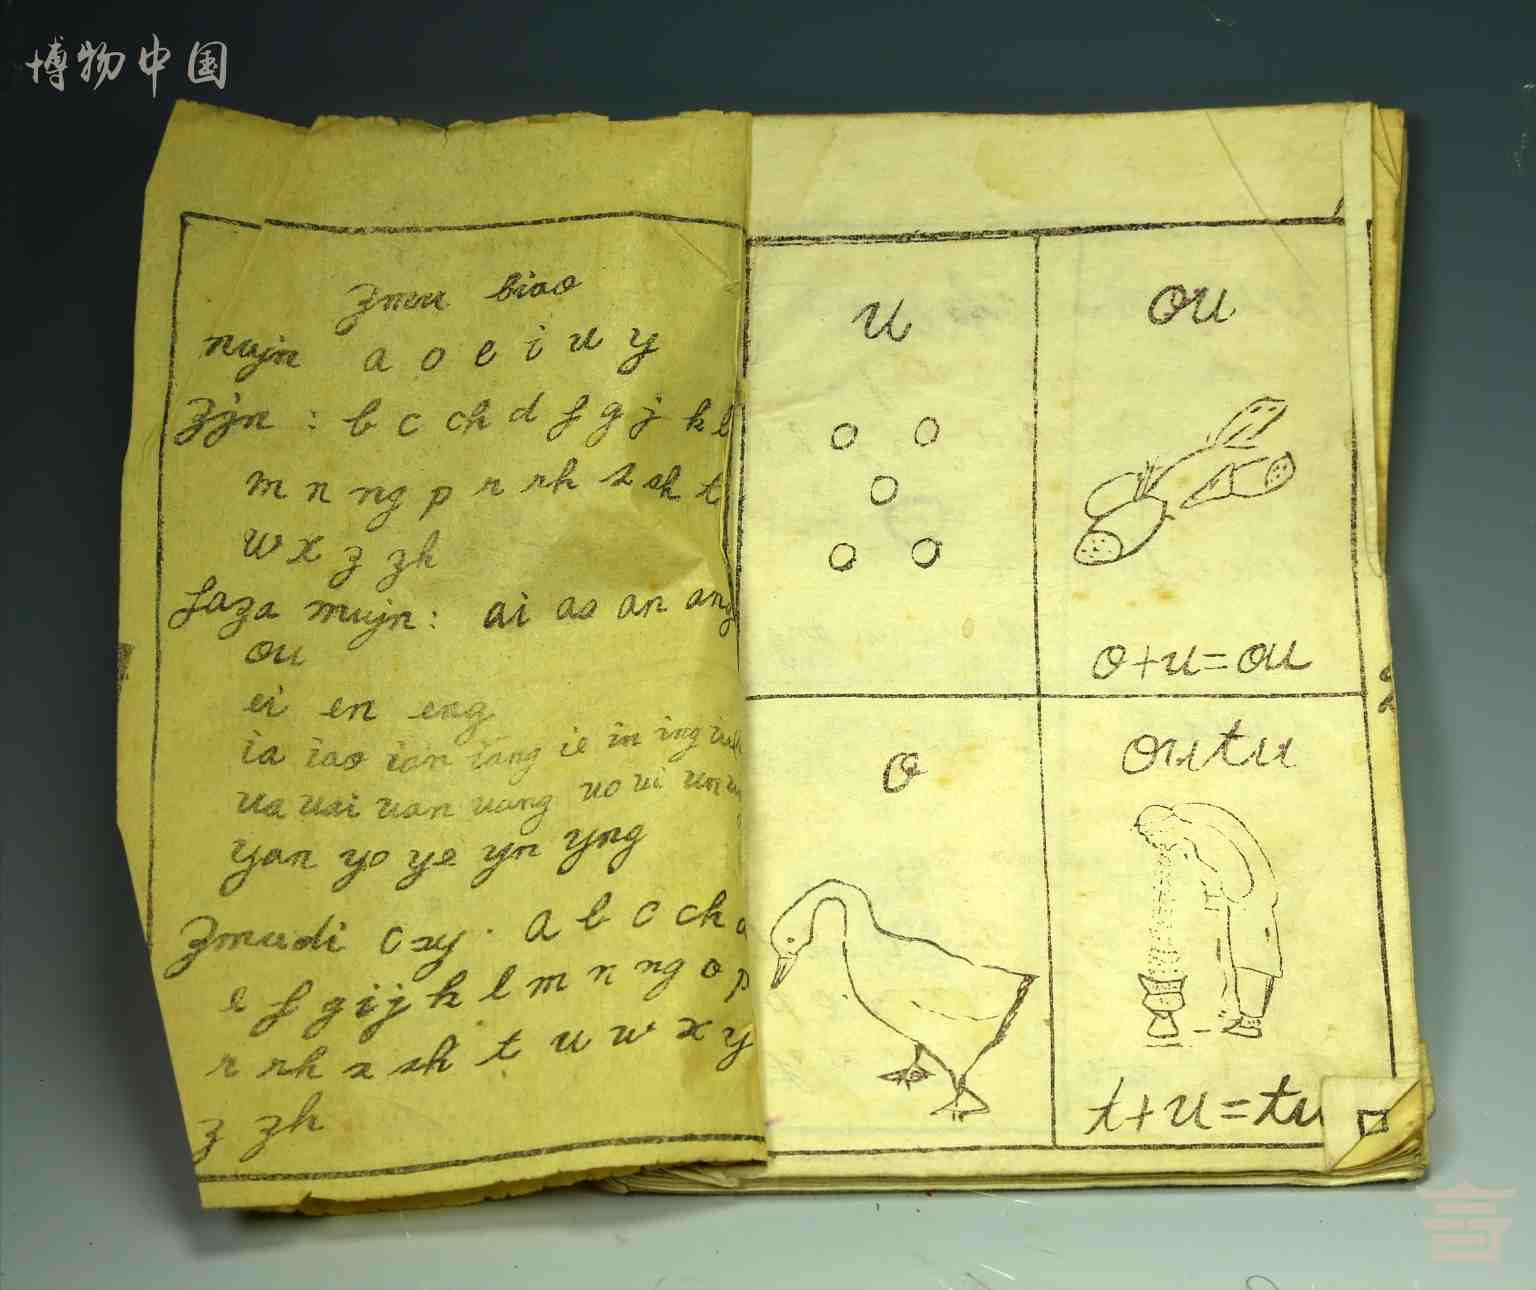 博物中国
zmu biao
mujn a o e i u y
zjn : b c ch d f g j k l
m n ng p r rh s sh t
w x z zh
faza mujn: ai ao an ang
ou
ei en eng
ia iao ian iang ie in ing
ua uai uan uang uo ui un
yan yo ye yn yng
zmudi cxy. a b c ch d
e f g i j k l m n ng o p
r rh s sh t u w x y
z zh
u
ou
o+u=ou
o
outu
t+u=tu
言